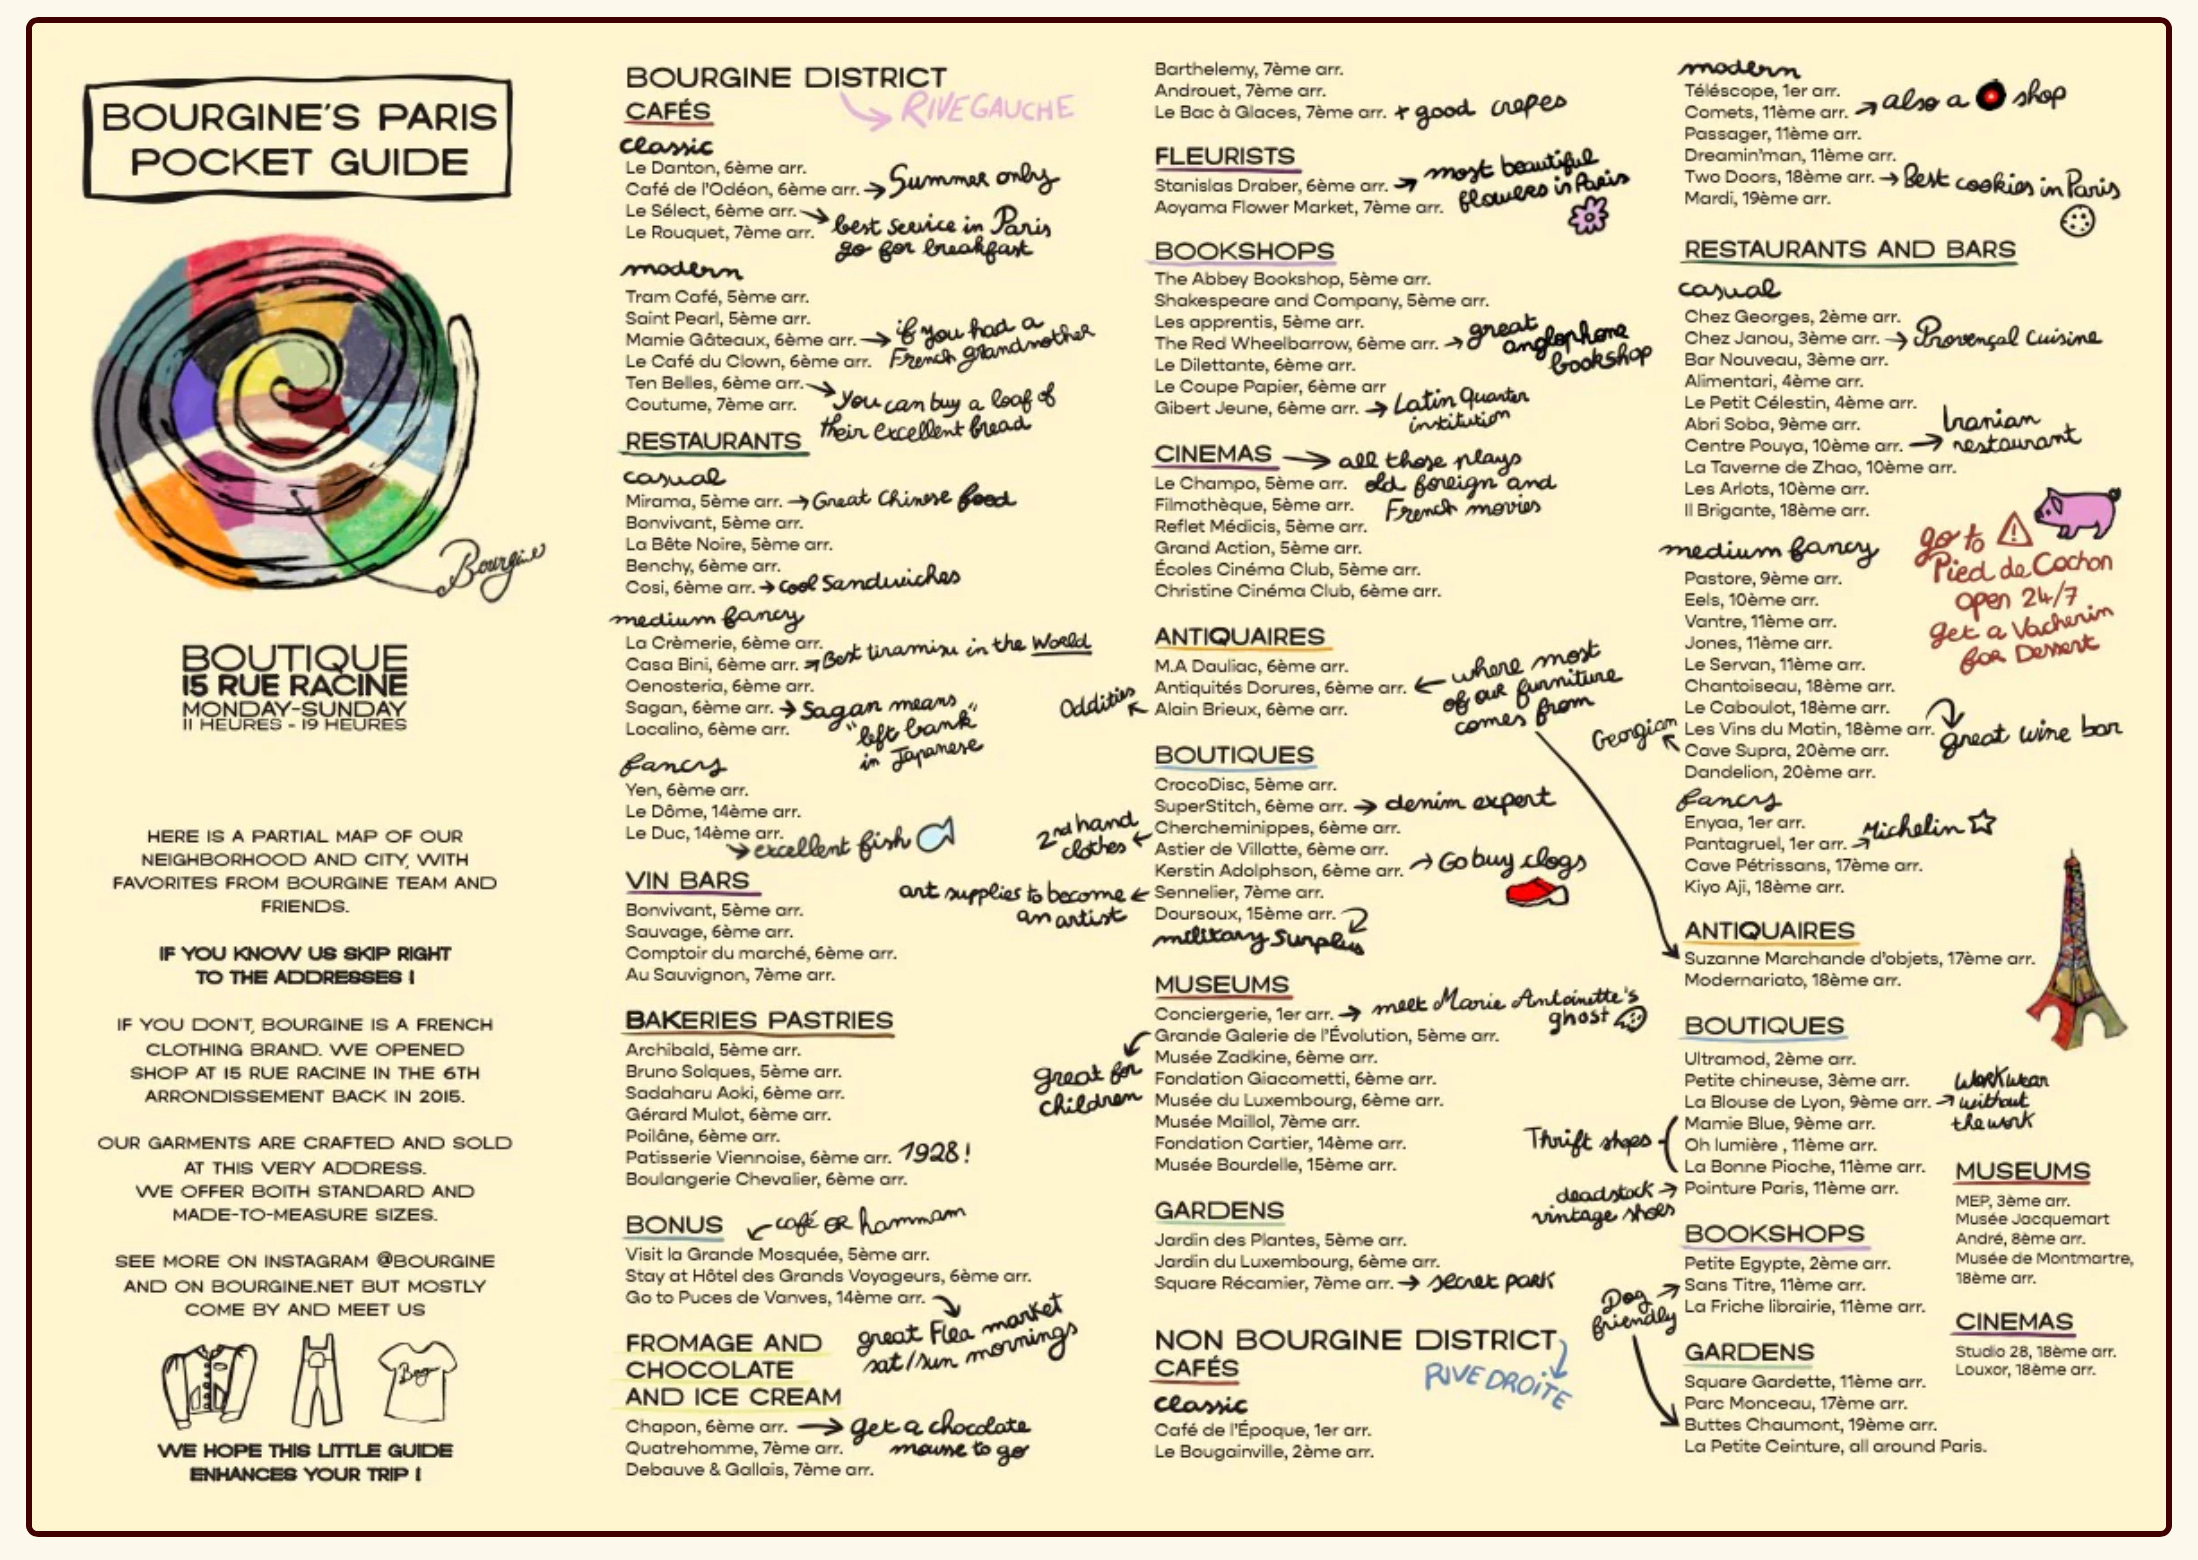 BOURGINE'S PARIS
POCKET GUIDE
Bourgine
BOUTIQUE
15 RUE RACINE
MONDAY-SUNDAY
11 HEURES - 19 HEURES
HERE IS A PARTIAL MAP OF OUR
NEIGHBORHOOD AND CITY, WITH
FAVORITES FROM BOURGINE TEAM AND
FRIENDS.
IF YOU KNOW US SKIP RIGHT
TO THE ADDRESSES !
IF YOU DON'T, BOURGINE IS A FRENCH
CLOTHING BRAND. WE OPENED
SHOP AT 15 RUE RACINE IN THE 6TH
ARRONDISSEMENT BACK IN 2015.
OUR GARMENTS ARE CRAFTED AND SOLD
AT THIS VERY ADDRESS.
WE OFFER BOITH STANDARD AND
MADE-TO-MEASURE SIZES.
SEE MORE ON INSTAGRAM @BOURGINE
AND ON BOURGINE.NET BUT MOSTLY
COME BY AND MEET US
WE HOPE THIS LITTLE GUIDE
ENHANCES YOUR TRIP !
BOURGINE DISTRICT
RIVE GAUCHE
CAFÉS
classic
Le Danton, 6ème arr.
Café de l'Odéon, 6ème arr. → Summer only
Le Sélect, 6ème arr. → best service in Paris
go for breakfast
Le Rouquet, 7ème arr.
modern
Tram Café, 5ème arr.
Saint Pearl, 5ème arr.
Mamie Gâteaux, 6ème arr. → if you had a
French grandmother
Le Café du Clown, 6ème arr.
Ten Belles, 6ème arr. → you can buy a loaf of
their excellent bread
Coutume, 7ème arr.
RESTAURANTS
casual
Mirama, 5ème arr. → Great Chinese food
Bonvivant, 5ème arr.
La Bête Noire, 5ème arr.
Benchy, 6ème arr.
Cosi, 6ème arr. → cool Sandwiches
medium fancy
La Crèmerie, 6ème arr.
Casa Bini, 6ème arr. → Best tiramisu in the World
Oenosteria, 6ème arr.
Sagan, 6ème arr. → Sagan means
"left bank"
in Japanese
Localino, 6ème arr.
fancy
Yen, 6ème arr.
Le Dôme, 14ème arr.
Le Duc, 14ème arr.
→ excellent fish
VIN BARS
Bonvivant, 5ème arr.
Sauvage, 6ème arr.
Comptoir du marché, 6ème arr.
Au Sauvignon, 7ème arr.
BAKERIES PASTRIES
Archibald, 5ème arr.
Bruno Solques, 5ème arr.
Sadaharu Aoki, 6ème arr.
Gérard Mulot, 6ème arr.
Poilâne, 6ème arr.
Patisserie Viennoise, 6ème arr. 1928!
Boulangerie Chevalier, 6ème arr.
BONUS
café OR hammam
Visit la Grande Mosquée, 5ème arr.
Stay at Hôtel des Grands Voyageurs, 6ème arr.
Go to Puces de Vanves, 14ème arr.
great Flea market
sat/sun mornings
FROMAGE AND
CHOCOLATE
AND ICE CREAM
Chapon, 6ème arr. → get a chocolate
mousse to go
Quatrehomme, 7ème arr.
Debauve & Gallais, 7ème arr.
Barthelemy, 7ème arr.
Androuet, 7ème arr.
Le Bac à Glaces, 7ème arr. + good crepes
FLEURISTS
Stanislas Draber, 6ème arr. → most beautiful
flowers in Paris
Aoyama Flower Market, 7ème arr.
BOOKSHOPS
The Abbey Bookshop, 5ème arr.
Shakespeare and Company, 5ème arr.
Les apprentis, 5ème arr.
The Red Wheelbarrow, 6ème arr. → great
anglophone
bookshop
Le Dilettante, 6ème arr.
Le Coupe Papier, 6ème arr
Gibert Jeune, 6ème arr. → Latin Quarter
institution
CINEMAS → all those plays
old foreign and
French movies
Le Champo, 5ème arr.
Filmothèque, 5ème arr.
Reflet Médicis, 5ème arr.
Grand Action, 5ème arr.
Écoles Cinéma Club, 5ème arr.
Christine Cinéma Club, 6ème arr.
ANTIQUAIRES
M.A Dauliac, 6ème arr.
Antiquités Dorures, 6ème arr. ← where most
of our furniture
comes from
Alain Brieux, 6ème arr.
Oddities
BOUTIQUES
CrocoDisc, 5ème arr.
SuperStitch, 6ème arr. → denim expert
Chercheminippes, 6ème arr.
2nd hand
clothes
Astier de Villatte, 6ème arr.
Kerstin Adolphson, 6ème arr. → Go buy clogs
Sennelier, 7ème arr.
art supplies to become
an artist
Doursoux, 15ème arr.
military Surplus
MUSEUMS
Conciergerie, 1er arr. → meet Marie Antoinette's
ghost
Grande Galerie de l'Évolution, 5ème arr.
great for
children
Musée Zadkine, 6ème arr.
Fondation Giacometti, 6ème arr.
Musée du Luxembourg, 6ème arr.
Musée Maillol, 7ème arr.
Fondation Cartier, 14ème arr.
Musée Bourdelle, 15ème arr.
GARDENS
Jardin des Plantes, 5ème arr.
Jardin du Luxembourg, 6ème arr.
Square Récamier, 7ème arr. → secret park
NON BOURGINE DISTRICT
RIVE DROITE
CAFÉS
classic
Café de l'Époque, 1er arr.
Le Bougainville, 2ème arr.
modern
Téléscope, 1er arr.
Comets, 11ème arr. → also a shop
Passager, 11ème arr.
Dreamin'man, 11ème arr.
Two Doors, 18ème arr. → Best cookies in Paris
Mardi, 19ème arr.
RESTAURANTS AND BARS
casual
Chez Georges, 2ème arr.
Chez Janou, 3ème arr. → Provençal Cuisine
Bar Nouveau, 3ème arr.
Alimentari, 4ème arr.
Le Petit Célestin, 4ème arr.
Abri Soba, 9ème arr.
Centre Pouya, 10ème arr. → Iranian
restaurant
La Taverne de Zhao, 10ème arr.
Les Arlots, 10ème arr.
Il Brigante, 18ème arr.
go to
Pied de Cochon
open 24/7
get a Vacherin
for Dessert
medium fancy
Pastore, 9ème arr.
Eels, 10ème arr.
Vantre, 11ème arr.
Jones, 11ème arr.
Le Servan, 11ème arr.
Chantoiseau, 18ème arr.
Le Caboulot, 18ème arr.
Les Vins du Matin, 18ème arr.
great wine bar
Georgian
Cave Supra, 20ème arr.
Dandelion, 20ème arr.
fancy
Enyaa, 1er arr.
Pantagruel, 1er arr. → Michelin
Cave Pétrissans, 17ème arr.
Kiyo Aji, 18ème arr.
ANTIQUAIRES
Suzanne Marchande d'objets, 17ème arr.
Modernariato, 18ème arr.
BOUTIQUES
Ultramod, 2ème arr.
Petite chineuse, 3ème arr.
La Blouse de Lyon, 9ème arr. → Workwear
without
the work
Mamie Blue, 9ème arr.
Oh lumière , 11ème arr.
La Bonne Pioche, 11ème arr.
Thrift shops
Pointure Paris, 11ème arr.
deadstock →
vintage shoes
BOOKSHOPS
Petite Egypte, 2ème arr.
Sans Titre, 11ème arr.
La Friche librairie, 11ème arr.
Dog
friendly
GARDENS
Square Gardette, 11ème arr.
Parc Monceau, 17ème arr.
Buttes Chaumont, 19ème arr.
La Petite Ceinture, all around Paris.
MUSEUMS
MEP, 3ème arr.
Musée Jacquemart
André, 8ème arr.
Musée de Montmartre,
18ème arr.
CINEMAS
Studio 28, 18ème arr.
Louxor, 18ème arr.